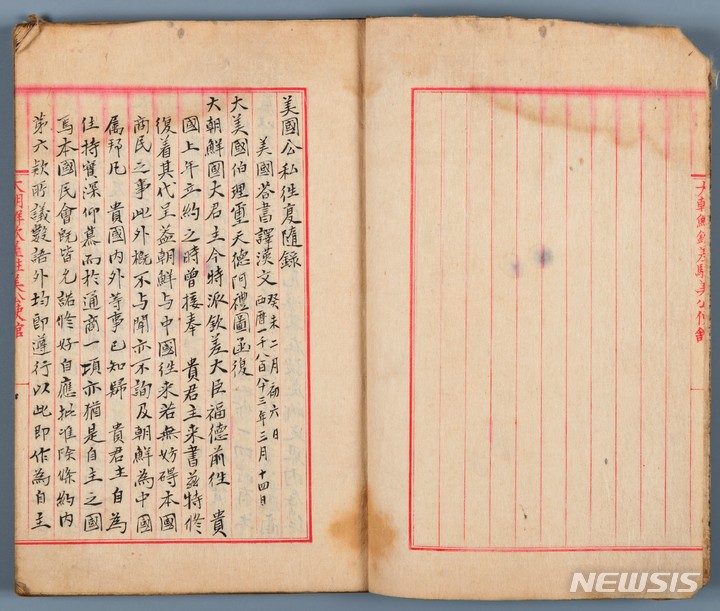 大朝鮮欽差駐美公使館
美國公私往復隨錄
美國答書譯漢文 癸未二月初六日
西曆一千八百八十三年三月十四日
大美國伯理璽天德阿禮圖函復
大朝鮮國大君主今特派欽差大臣福德前往 貴
國上年立約之時曾接奉 貴君主来書茲特修
復着其代呈益朝鮮与中國往来若無妨碍本國
商民之事此外概不与聞亦不詢及朝鮮為中國
属邦凡 貴國内外等事已知歸 貴君主自為
住持實深仰慕而於通商一項亦猶是自主之國
焉本國民會既皆允諾修好自應批准除條約内
第六款所議數語外均即遵行以此即作為自主
大朝鮮欽差駐美公使館
NEWSIS